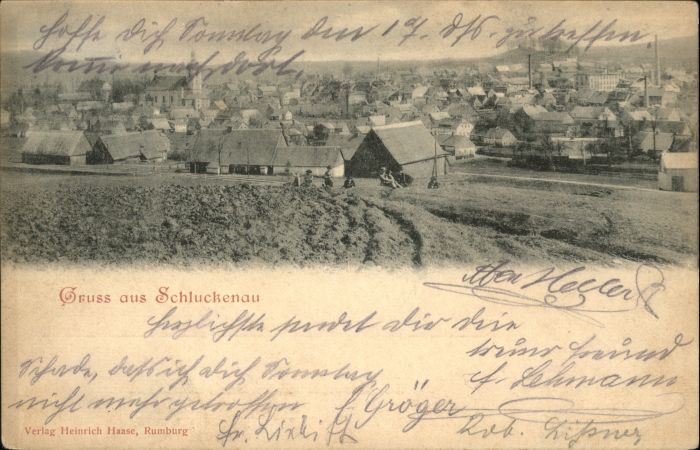 Hoffe Dich Sonntag den 17. ds. zu treffen
komme nach dort.
Gruss aus Schluckenau
Heller
herzlichste sendet Dir dein
treuer Freund
F. Lehmann
Schade, dass ich dich Sonntag
nicht mehr getroffen
Gröger
Rob.
Verlag Heinrich Haase, Rumburg